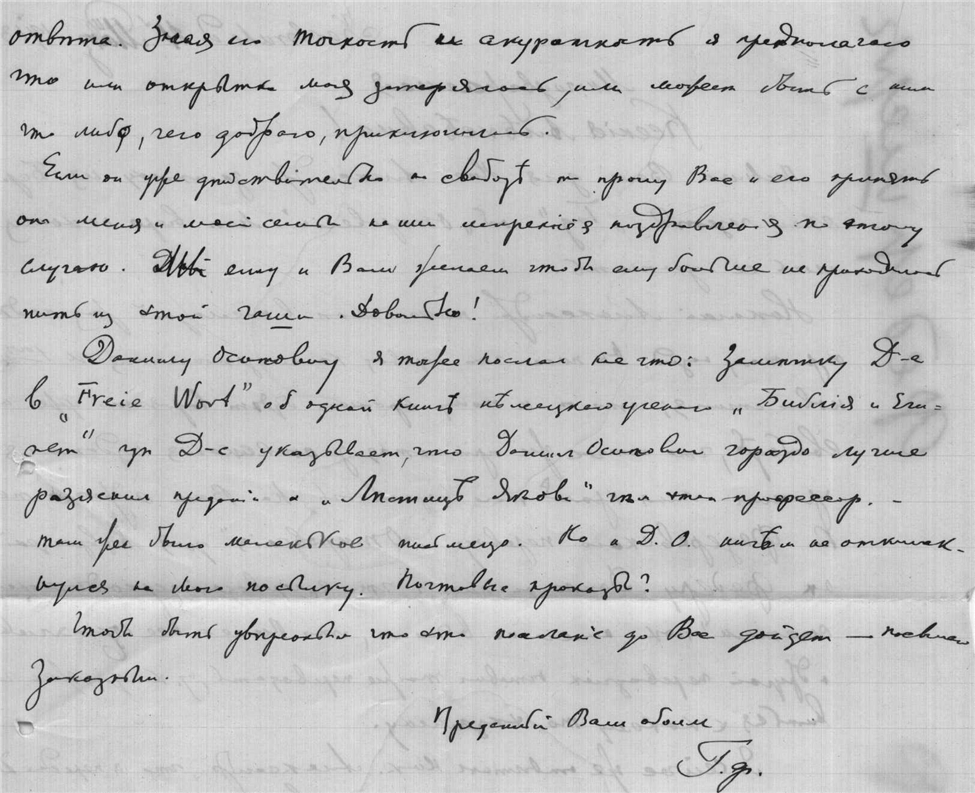 отвѣта. Зная его точность и акуратность я предполагаю
что или открытка моя затерялась, или может быть с ним
что либо, чего добраго, приключилось.
Если он уже дѣйствительно на свободѣ то прошу Вас и его принять
от меня и моей семьи наши искреннія поздравленія по этому
случаю. ему и Вам желаем чтобы ему больше не приходилось
пить из этой чаши. Довольно!
Данилу Осиповичу я тоже послал кое что: Замѣтку Д-с
в „Freie Wort" об одной книгѣ нѣмецкаго ученаго „Библія и Еги-
пет" гдѣ Д-с указывает, что Данил Осипович гораздо лучше
раз'яснил преданіе о „Лѣстницѣ Якова" чѣм этот профессор. –
там же было маленькое письмецо. Но и Д. О. ничѣм не откликнулся
на мою посылку. Почтовые проказы?
Чтобы быть увѣренным что это посланіе до Вас дойдет — посылаю
Заказным.
Преданный Вам обоим
Г. ф.